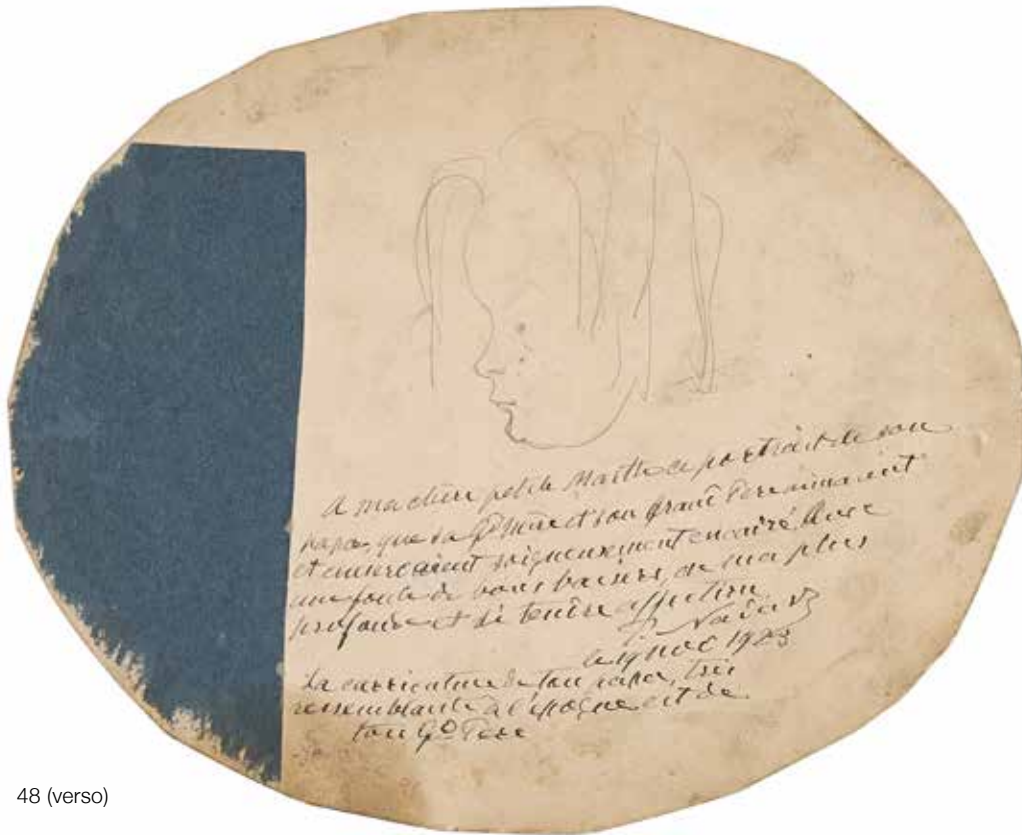 A ma chère petite Marthe ce portrait de son
papa, que sa Gd Mère et son Grand Père aimaient
et conservaient soigneusement encadré. Avec
une foule de bons baisers, de ma plus
profonde et si tendre affection
Nadar
le 19 nov 1923
La carricature de ton papa, très
ressemblante à l'époque est de
ton Gd Père
48 (verso)